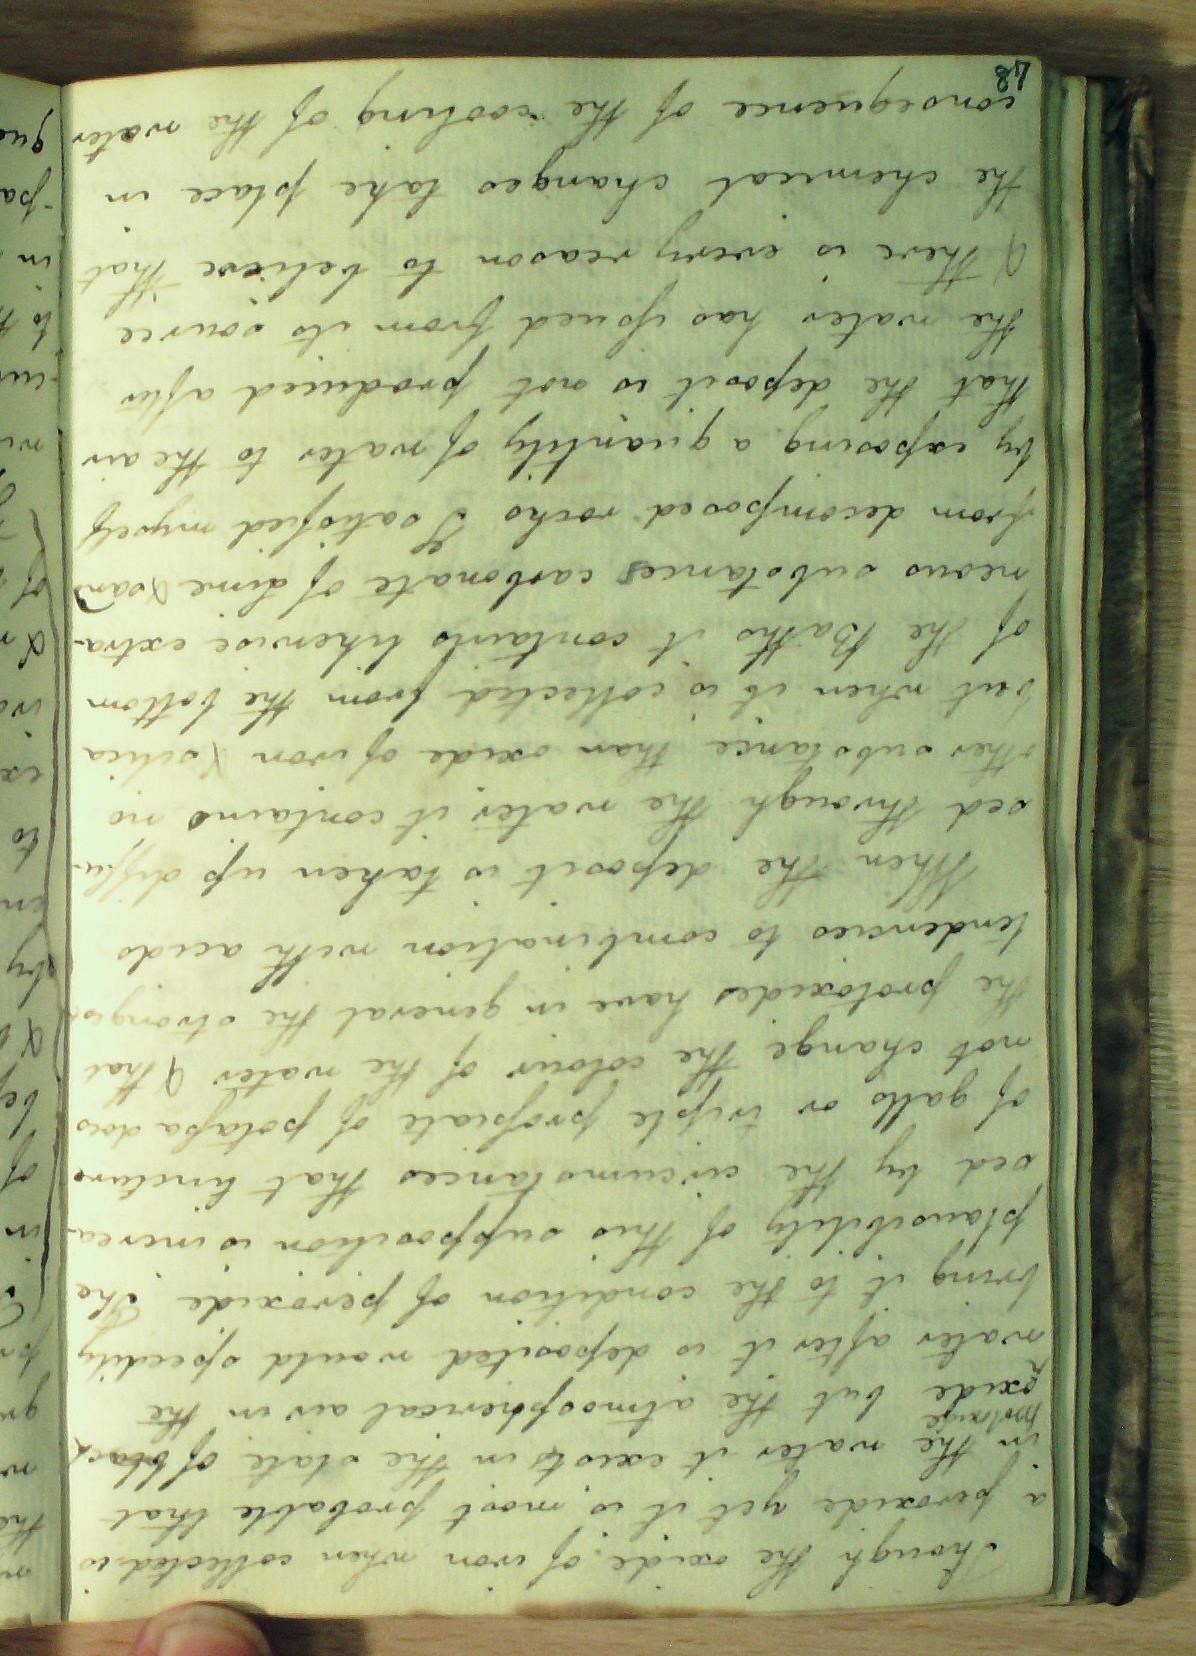 Though the oxide of iron when collected is
a peroxide yet it is most probable that
in the water it exists in the state of black
oxide but the atmospherical air in the
water after it is deposited would speedily
bring it to the condition of peroxide The
plausibility of this supposition is increa-
sed by the circumstances that tincture
of galls or triple prussiate of potassa does
not change the colour of the water & that
the protoxides have in general the strongest
tendencies to combination with acids
When the deposit is taken up diffu-
sed through the water it contains no
other substance than oxide of iron & silica
but when it is collected from the bottom
of the Baths it contains likewise extra-
neous substances carbonate of Lime & sand
from decomposed rocks I satisfied myself
by exposing a quantity of water to the air
that the deposit is not produced after
the water has issued from its source
& there is every reason to believe that
the chemical changes take place in
consequence of the cooling of the water
87